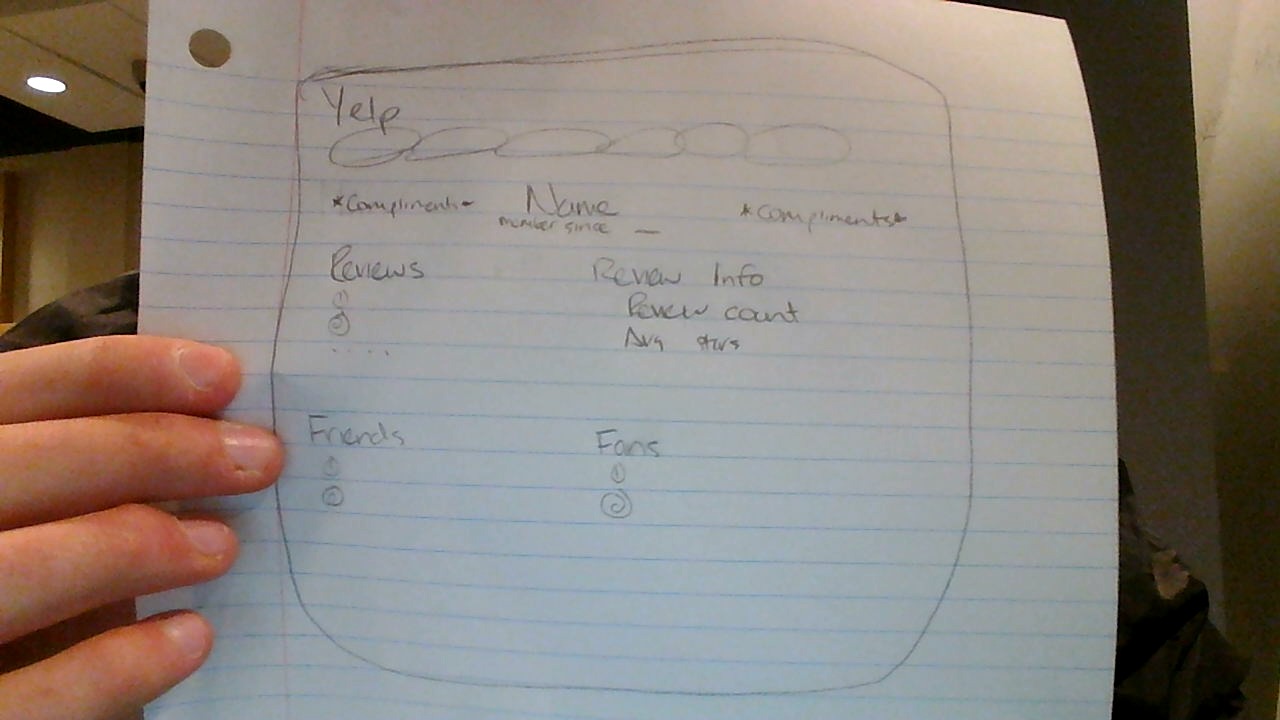 Yelp
*Compliments* Name *Compliments*
member since —
Reviews Review Info
① Review count
② Avg stars
. . . .
Friends Fans
① ①
② ②